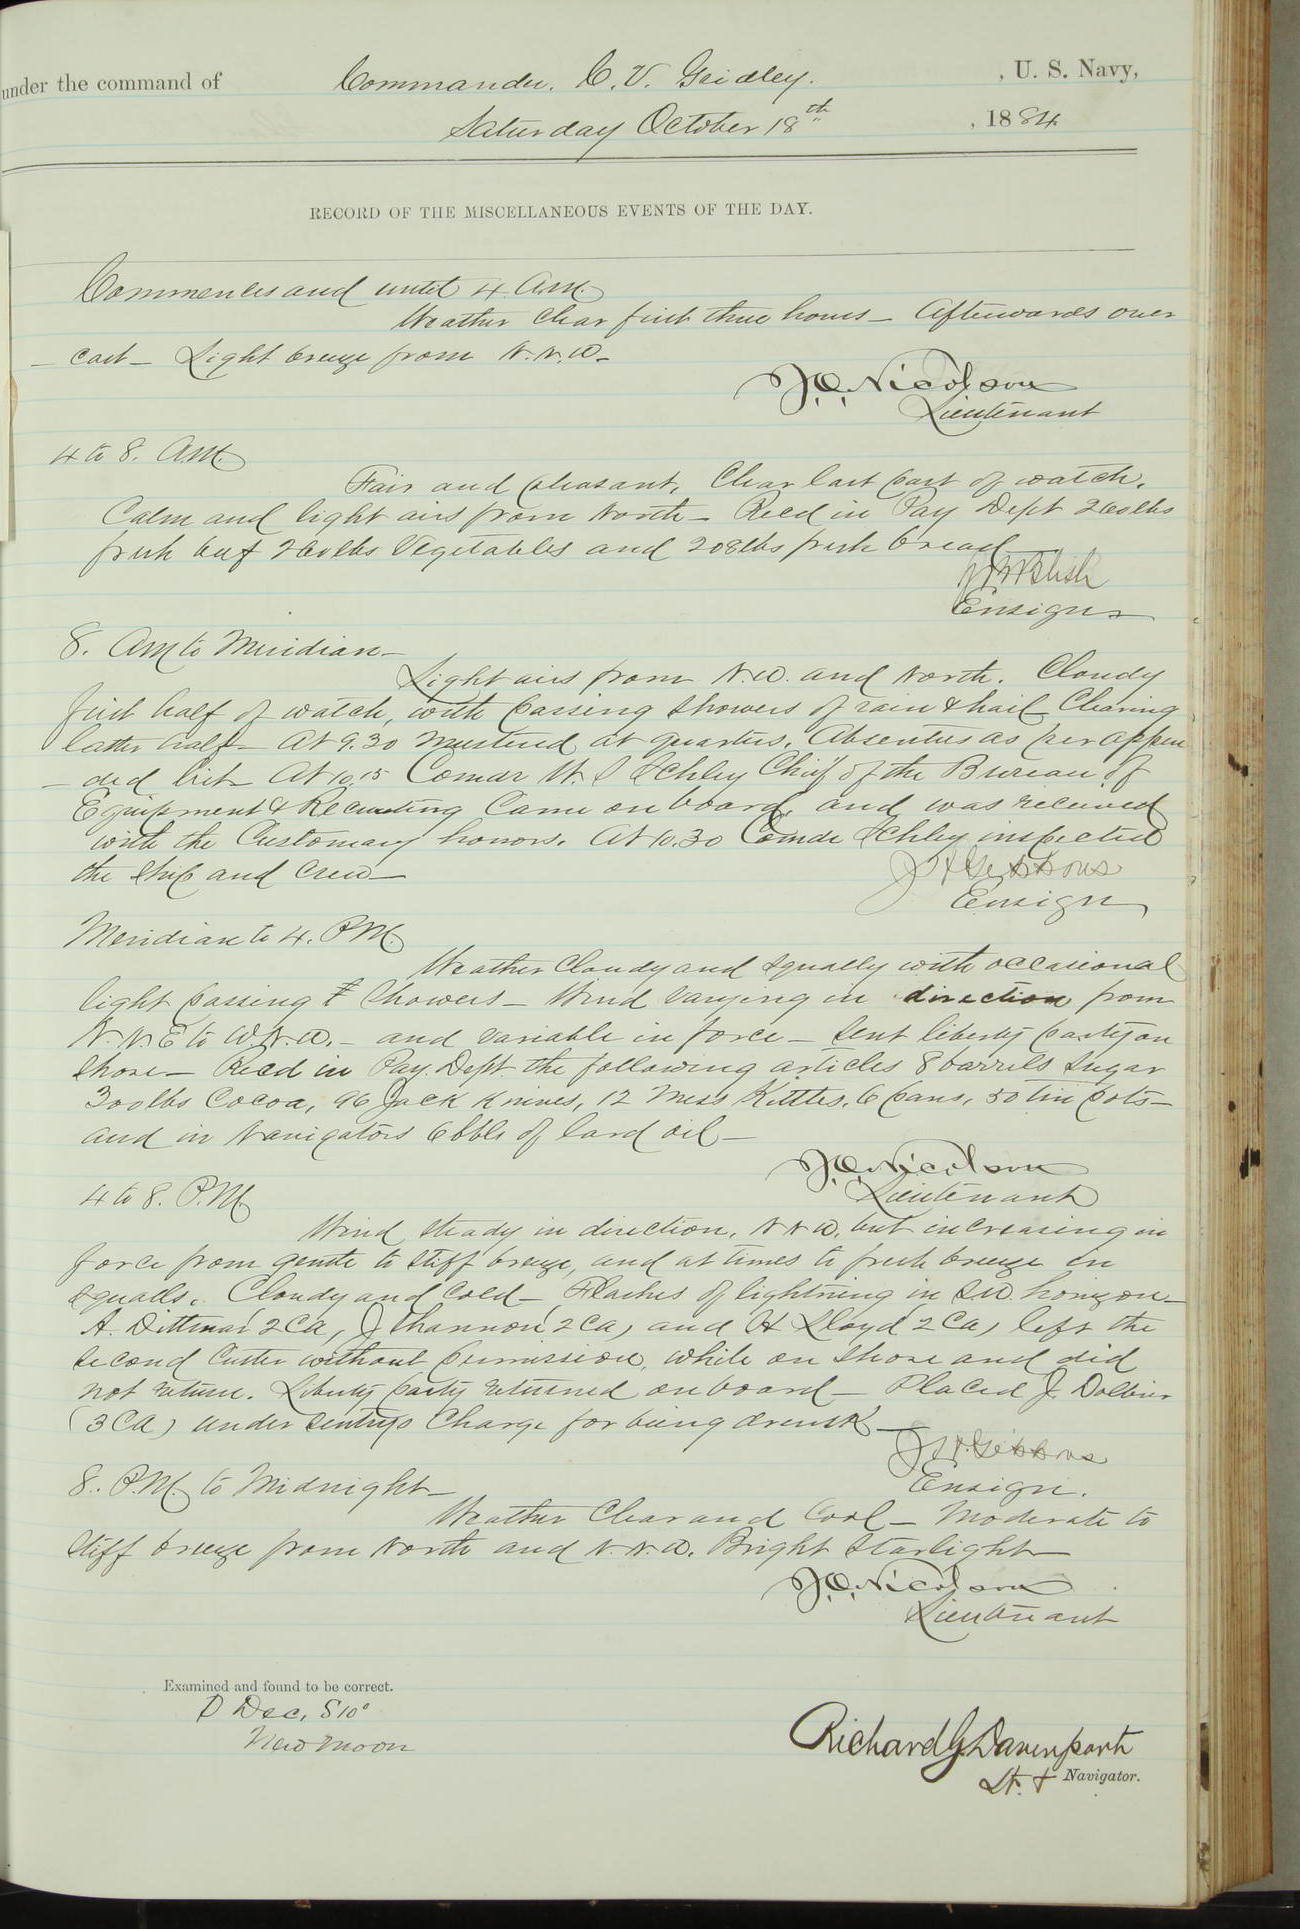 under the command of Commander. C. V. Gridley. , U. S. Navy,
Saturday October 18th , 1884.
RECORD OF THE MISCELLANEOUS EVENTS OF THE DAY.
Commences and until 4 A.M.
Weather clear first three hours - Afterwards over
- cast - Light breeze from N.N.W. -
J.O. Nicolson
Lieutenant
4 to 8. A.M.
Fair and pleasant. Clear last part of watch.
Calm and light airs from North - Recd in Pay Dept 260 lbs
fresh beef 260 lbs Vegetables and 208 lbs fresh bread
Ensign
8. AM to Meridian -
Light airs from N.W. and North. Cloudy
first half of watch, with passing showers of rain & hail Clearing
latter half - At 9.30 mustered at quarters. Absentees as per appen
- ded list - At 10.15 Comdr W. S Schley Chief of the Bureau of
Equipment & Recruiting Came on board, and was received
with the Customary honors. At 10.30 Comdr Schley inspected
the Ship and crew -
J H Gibbons
Ensign
Meridian to 4. P.M.
Weather Cloudy and squally with occasional
light passing showers - Wind varying in direction from
N.N.E to W.N.W. - and variable in force - Sent liberty party on
shore - Recd in Pay. Dept. the following articles 8 barrels Sugar
300 lbs Cocoa, 96 Jack Knives, 12 Mess Kittles, 6 pans, 50 tin pots -
and in Navigators 6 bbls of lard oil -
J.O. Nicolson
Lieutenant
4 to 8. P.M.
Wind steady in direction, N N W. but increasing in
force from gentle to stiff breeze, and at times to fresh breeze in
squalls. Cloudy and cold - Flashes of lightning in SW. horizon -
A. Dittmar (2Ca), J Shannon (2Ca) and H Lloyd (2Ca) left the
second Cutter without permission, while on shore and did
not return. Liberty party returned on board - Placed J. Dolbier
(3 Ca) under sentrys Charge for being drunk -
J H. Gibbons
Ensign.
8. P.M. to Midnight -
Weather Clear and Cool - Moderate to
stiff breeze from North and N.N.W. Bright Starlight -
J.O. Nicolson
Lieutenant
Examined and found to be correct.
D Dec, S 10°
New Moon
Richard G Davenport
Lt. & Navigator.